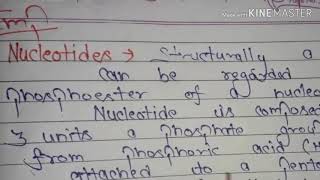 Made with KINEMASTER
Imp
Nucleotides → Structurally a
can be regarded
phosphoester of a nucleo
Nucleotide is composed
3 units a phosphate grou
from phosphoric acid (H
attached to a pento